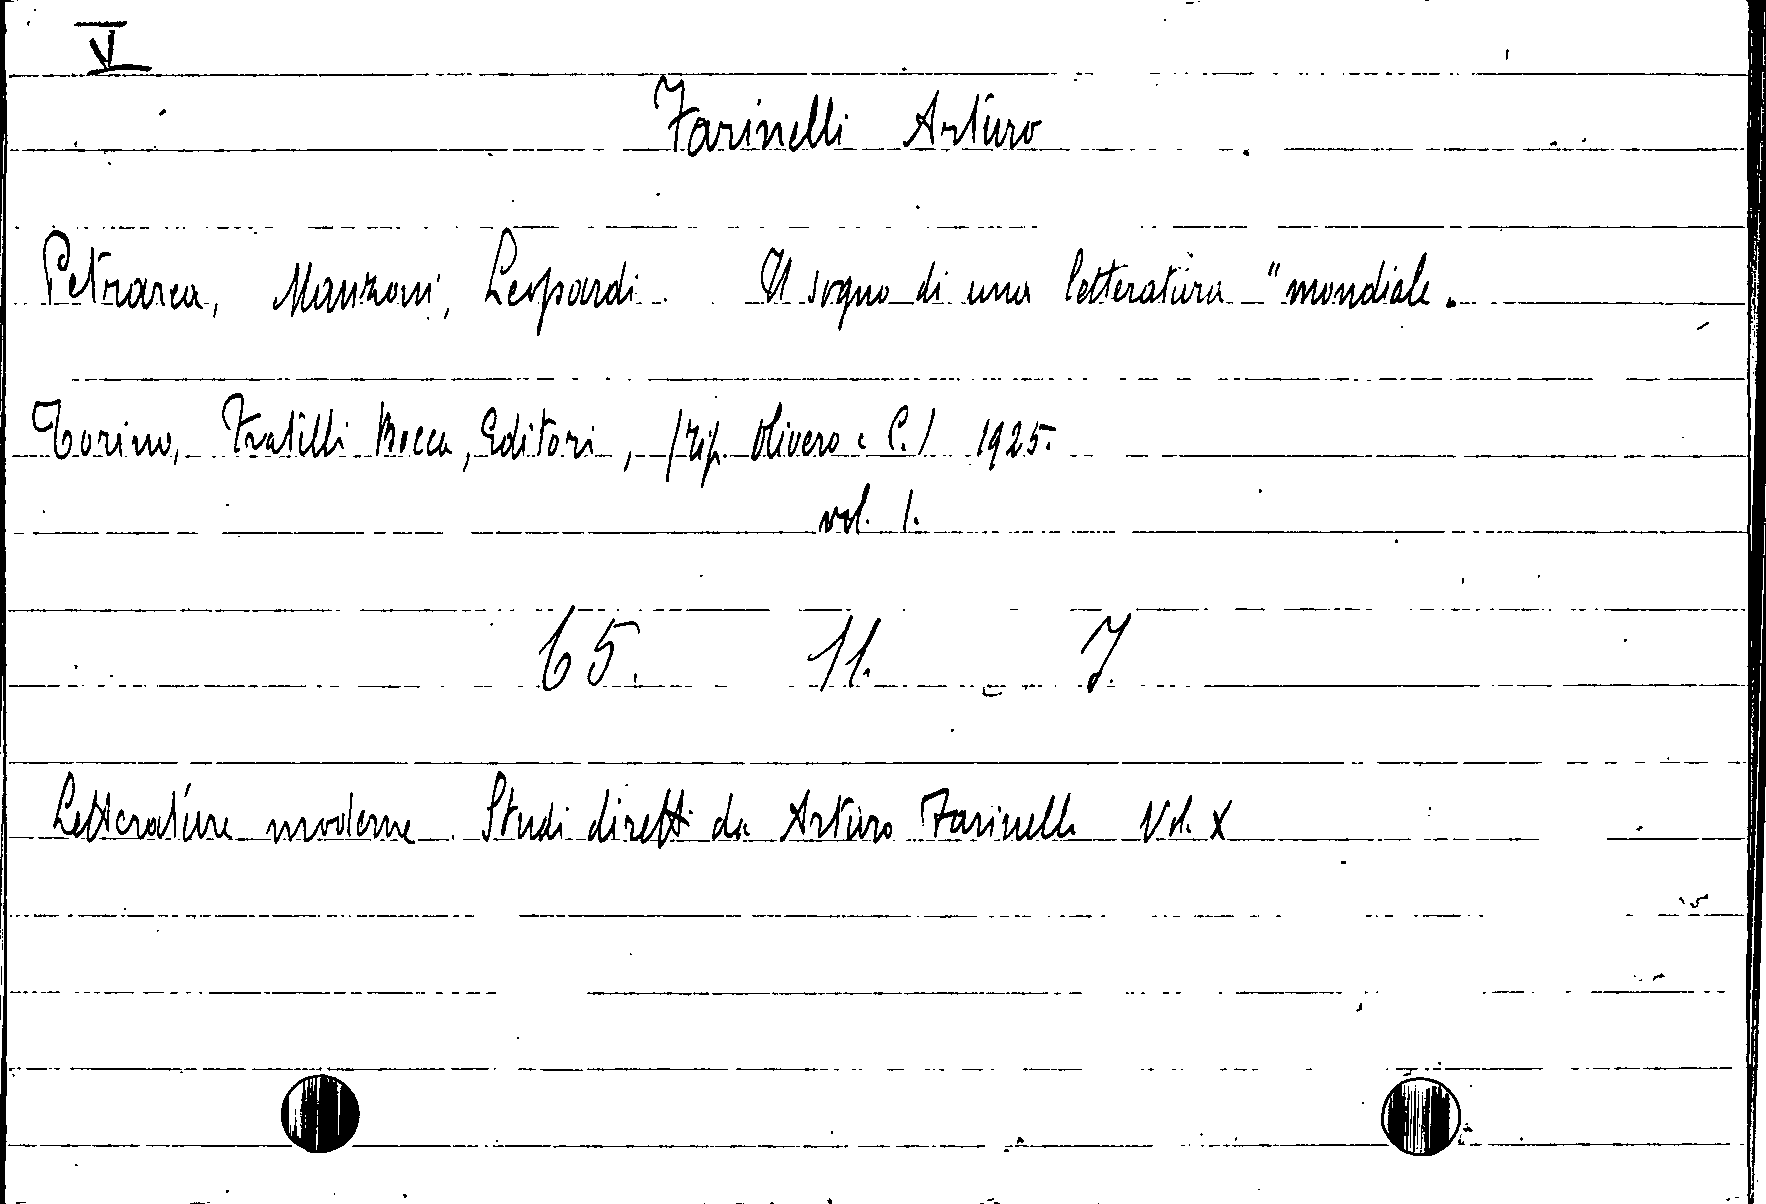 V
Farinelli Arturo
Petrarca, Manzoni, Leopardi. Il sogno di una letteratura "mondiale.
Torino, Fratelli Bocca, Editori, (tip. Olivero e C.) 1925.
vol. 1.
65. 11. 7.
Letterature moderne. Studi diretti da Arturo Farinelli Vol. X